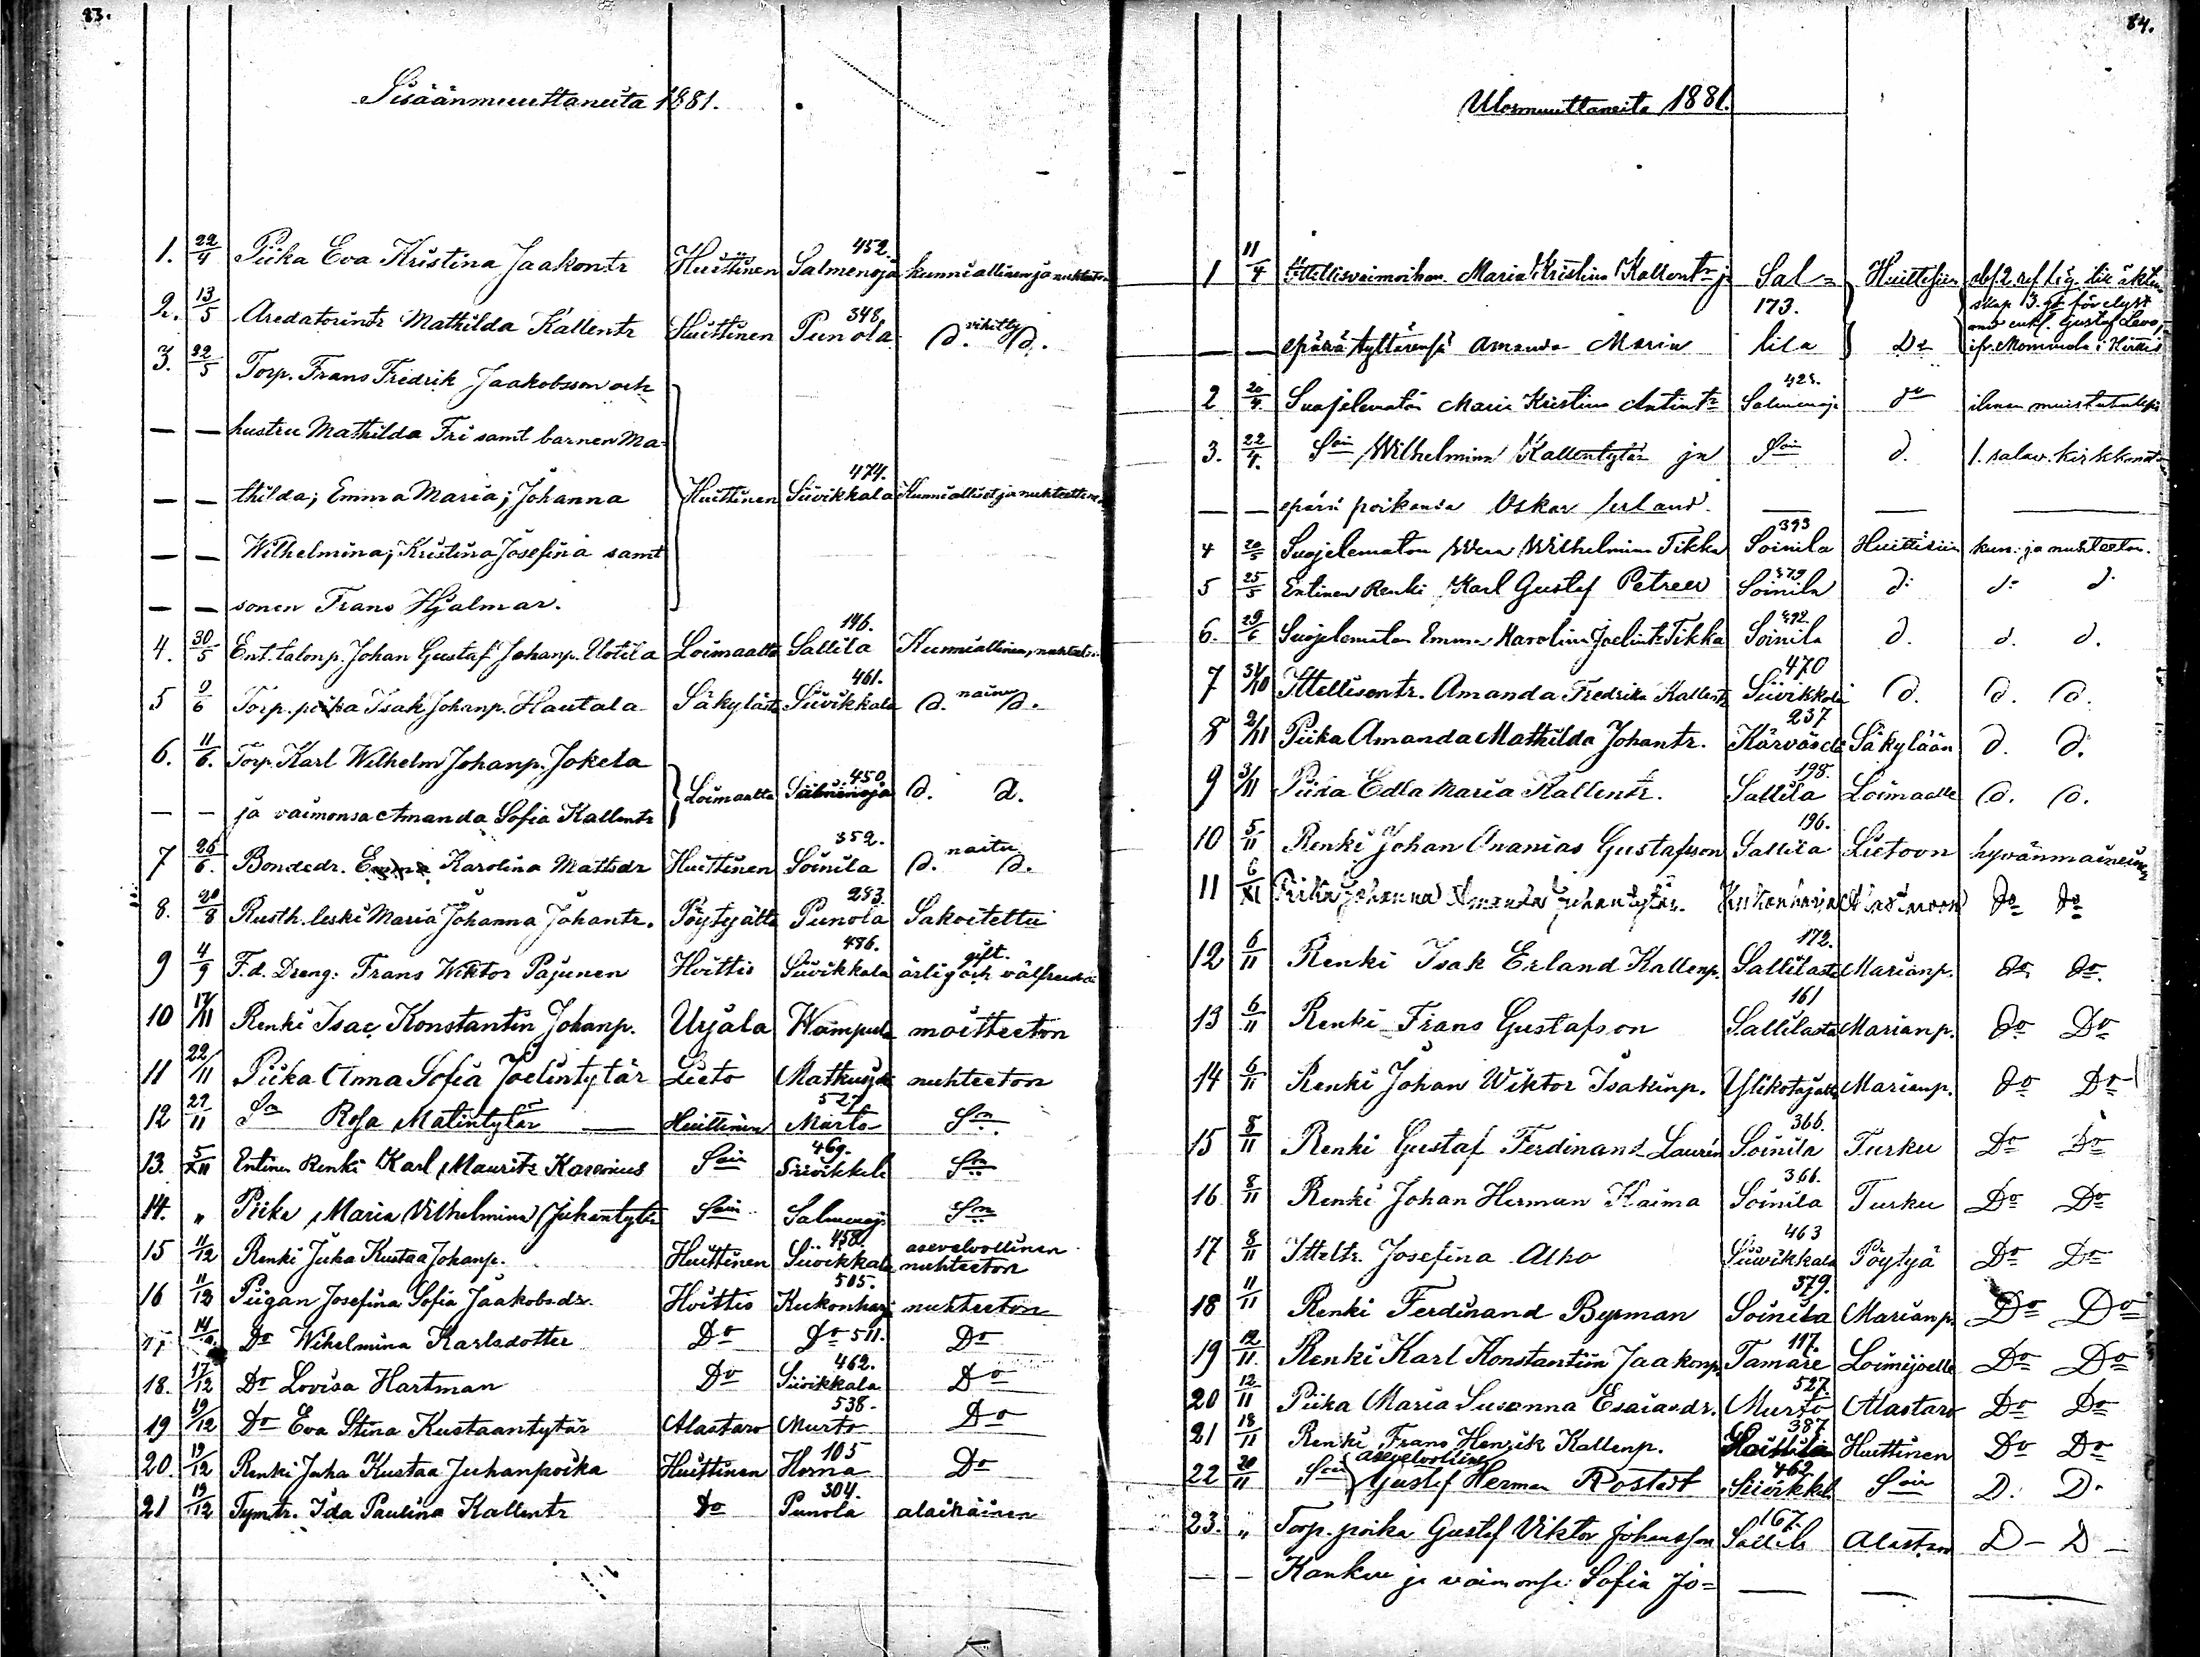 83.
Sisäänmuuttaneita 1881.
1. 22/4 Piika Eva Kristina Jaakontr Huittinen Salmenoja 452. kunniallinen ja nuhteeton
2. 13/5 Aredatorintr Mathilda Kallentr Huittinen Punola 348. d. vihitty d.
3. 22/5 Torp. Frans Fredrik Jaakobsson och
— — hustru Mathilda Fri samt barnen Ma-
— — thilda; Emma Maria; Johanna Huittinen Siivikkala 474. Kunnialliset ja nuhteettomat
— — Wilhelmina; Kristina Josefina samt
— — sonen Frans Hjalmar.
4. 30/5 Ent. talonp. Johan Gustaf Johanp. Uotila Loimaalta Sallila 196. Kunniallinen, nuhteeton
5 9/6 Torp. poika Isak Johanp. Hautala Säkylästä Siivikkala 461. d. nainu d.
6. 11/6. Torp. Karl Wilhelm Johanp. Jokela
— — ja vaimonsa Amanda Sofia Kallentr Loimaalta Salmenoja 450 d. d.
7 26/6. Bondedr. Emma Karolina Mattsdr Huittinen Soinila 352. d. naitu d.
8. 20/8 Rusth. leski Maria Johanna Johantr. Pöytyältä Punola 293. Sakoitettu
9 4/9 F.d. Dreng: Frans Wiktor Pajunen Hvittis Siivikkala 486. ärlig och gift. välfrejdad
10 17/11 Renki Isac Konstantin Johanp. Urjala Wampula moitteeton
11 22/11 Piika Anna Sofia Joelintytär Lieto Matkusjoki nuhteeton
12 29/11 Sa Rosa Matintytär — Huittinen Murto 527 Sn
13. 5/XII Entinen Renki Karl Mauritz Karenius Sain Siivikkala 469. Sn
14. „ Piika Maria Vilhelmina Juhantytär Sain Salmenoja Sn
15 11/12 Renki Juha Kustaa Johanp. Huittinen Siivikkala 458. asevelvollinen nuhteeton
16 11/12 Piigan Josefina Sofia Jaakobsdr. Hvittis Kukonharj 505. nuhteeton
17 14/12 Do Wihelmina Karlsdotter Do Do 511. Do
18. 17/12 Do Lovisa Hartman Do Siivikkala 462. Do
19 19/12 Do Eva Stina Kustaantytär Alastaro Murto 538. Do
20. 19/12 Renki Juha Kustaa Juhanpoika Huittinen Horna 105 Do
21 19/12 Tymtr. Ida Paulina Kallentr Do Punola 304. alaikäinen
84.
Ulosmuuttaneita 1881.
1 11/4 Ittellisvaimoihm. Maria Kristina Kallentr ja Sal= Huittisiin
173.
— — epärä tyttärensä Amanda Maria lila Do
med enkl. Gustaf Levo,
2 20/4. Suojelematon Maria Kristina Antintr Salmenoja 428. do ilman muistutuksia
3. 22/4. Sain Wilhelmina Kallentytär ja Sain d. 1. salav.
— — epärä poikansa Oskar Erland. — — —
4 20/5 Suojelematon Wilhelmina Tikka Soinila 393 Huittisiin kun. ja nuhteeton.
5 25/5 Entinen Renki Karl Gustaf Petreer Soinila 379 d: d: d:
6. 29/6 Suojelematon Emma Karolina Joelintr Tikka Soinila 392. d. d. d.
7 31/10 Ittellisentr. Amanda Fredrika Kallentr Siivikkala 470 d. d. d.
8 2/11 Piika Amanda Mathilda Johantr. Kärväsclä 237 Säkylään d. d.
9 3/11 Piika Edla Maria Kallentr. Sallila 198. Loimaalle d. d.
10 5/11 Renki Johan Ananias Gustafsson Sallila 196. Lietoon hyvänmaineinen
11 6/XI Piika Johanna Amanda Juhantytär. Kukonharja Alastaroon Do Do
12 6/11 Renki Isak Erland Kallenp. Sallilasta 172. Marianp. do do
13 6/11 Renki Frans Gustafson Sallilasta 161 Marianp. Do Do
14 6/11 Renki Johan Wiktor Isakinp. Ylikotajalta Marianp. Do Do
15 8/11 Renki Gustaf Ferdinand Laurén Soinila 366. Turku Do Do
16 8/11 Renki Johan Herman Kaima Soinila 366. Turku Do Do
17 8/11 Itteltr. Josefina Alho Siivikkala 463 Pöytyä Do Do
18 11/11 Renki Ferdinand Byrman Soinila 379. Marianp. Do Do
19 12/11. Renki Karl Konstantiin Jaakonp. Tamare 117. Loimijoelle Do Do
20 12/11 Piika Maria Susanna Esaiasdr. Murto 527. Alastaro Do Do
21 18/11 Renki Frans Henrik Kallenp. 387 Huittinen Do Do
22 20/11 Sain asevelvollinen Gustaf Herman Rostedt Siivikkal 462 Sain D. D.
23. „ Torp. poika Gustaf Viktor Johansson Sallila 167. Alastaro D — D —
— — Kankare ja vaimonsa Sofia Jo= — — —